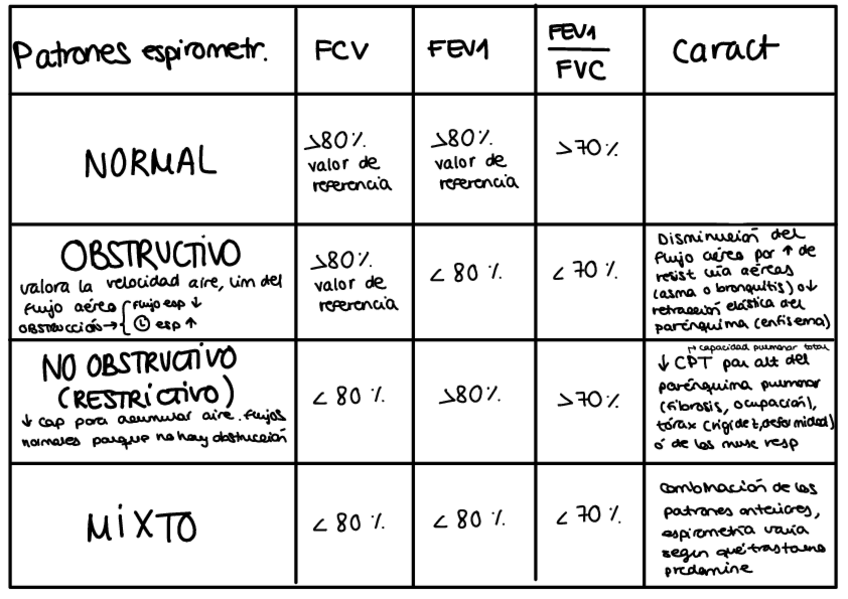 Patrones espirometr.
FCV
FEV1
FEV1
FVC
Caract
NORMAL
>80%.
valor de
referencia
>80%.
valor de
referencia
>70%.
OBSTRUCTIVO
valora la velocidad aire, lim del
flujo aéreo flujo esp ↓
OBSTRUCCIÓN→ esp ↑
>80%.
valor de
referencia
<80 %.
<70 %.
Disminución del
flujo aéreo por ↑ de
resist vía aéreas
(asma o bronquitis) o↓
retracción elástica del
parénquima (enfisema)
NO OBSTRUCTIVO
(RESTRICTIVO)
↓ cap para acumular aire. flujos
normales porque no hay obstrucción
<80 %.
>80%.
>70%.
↱ capacidad pulmonar total
↓ CPT por alt del
parénquima pulmonar
(fibrosis, ocupación),
tórax (rigidez, deformidad)
ó de los musc resp
MiXTO
<80 %.
<80 %.
<70 %.
combinación de los
patrones anteriores,
espirometría varía
según qué trastorno
predomine